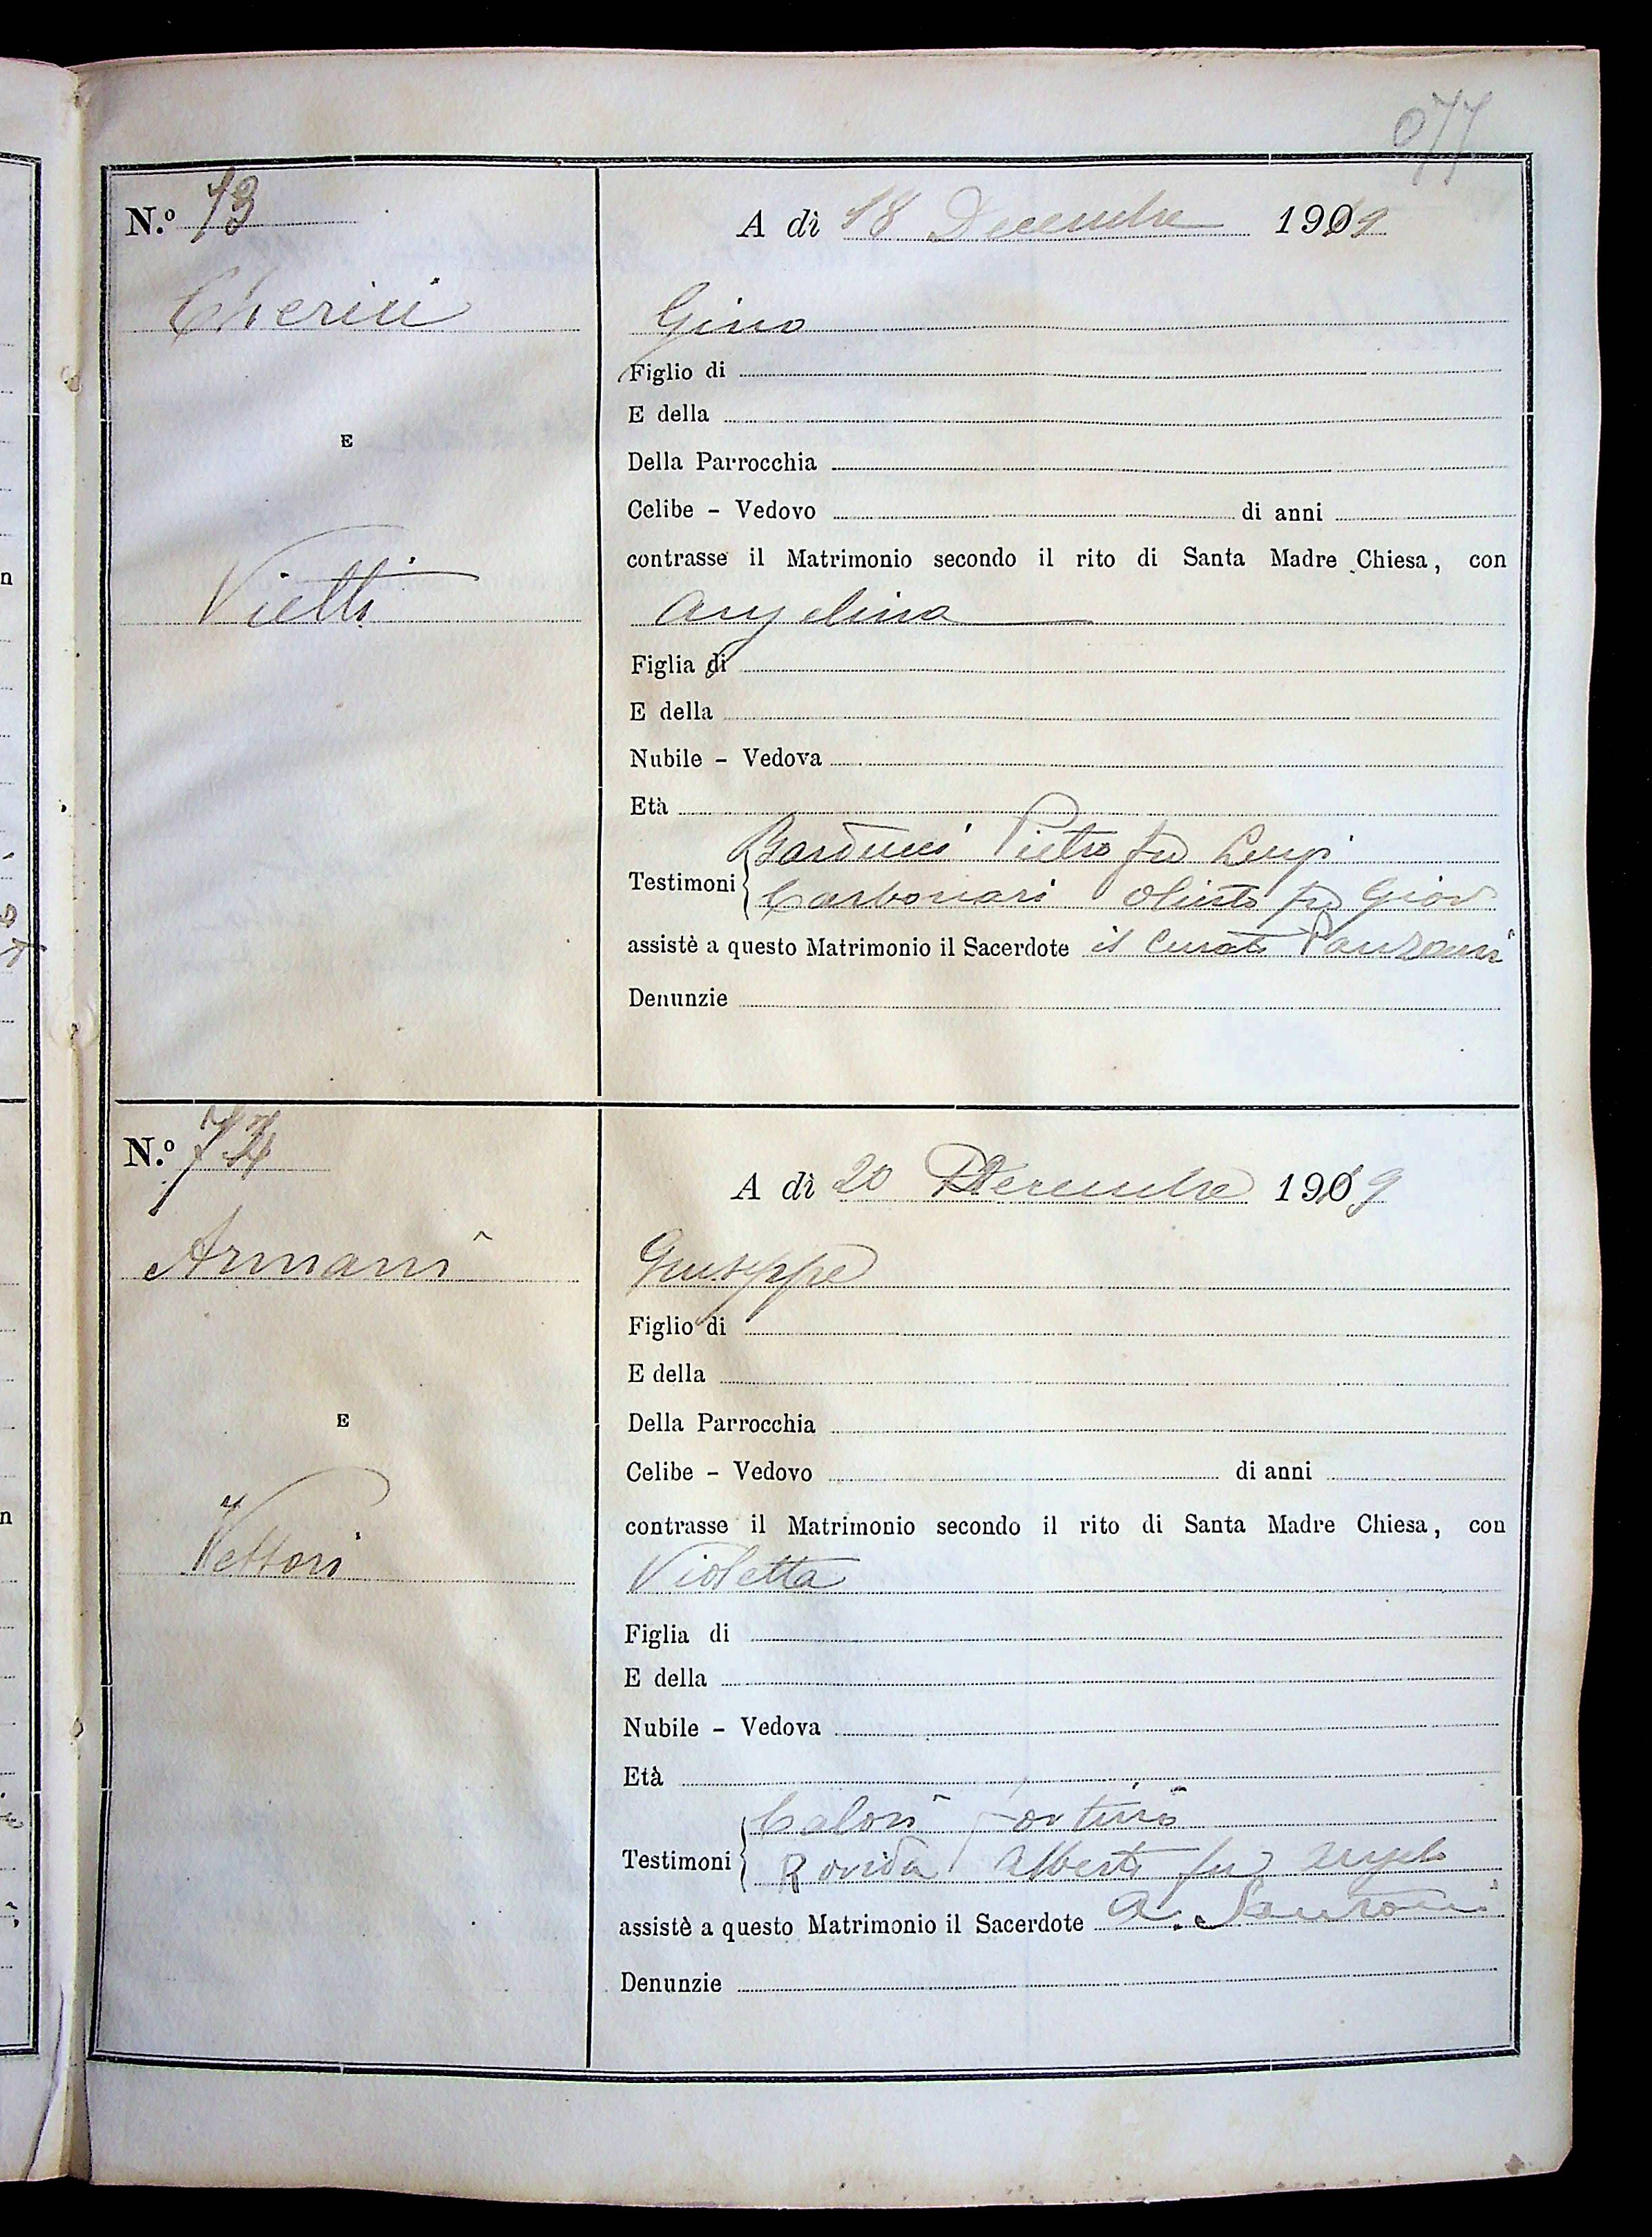 077
N.º 73
A dì 18 Decembre 1919
Cherici
Gino
Figlio di
E della
E
Della Parrocchia
Celibe – Vedovo di anni
contrasse il Matrimonio secondo il rito di Santa Madre Chiesa, con
Vietti
Angelina
Figlia di
E della
Nubile – Vedova
Età
Barducci Pietro fu Luigi
Testimoni
Carbonari Olinto fu Giov
assistè a questo Matrimonio il Sacerdote il Curato
Denunzie
N.º 74
A dì 20 Decembre 1919
Armani
Giuseppe
Figlio di
E della
E
Della Parrocchia
Celibe – Vedovo di anni
contrasse il Matrimonio secondo il rito di Santa Madre Chiesa, con
Vettori
Violetta
Figlia di
E della
Nubile – Vedova
Età
Calori
Testimoni
Rovida Alberto fu Angelo
assistè a questo Matrimonio il Sacerdote
Denunzie